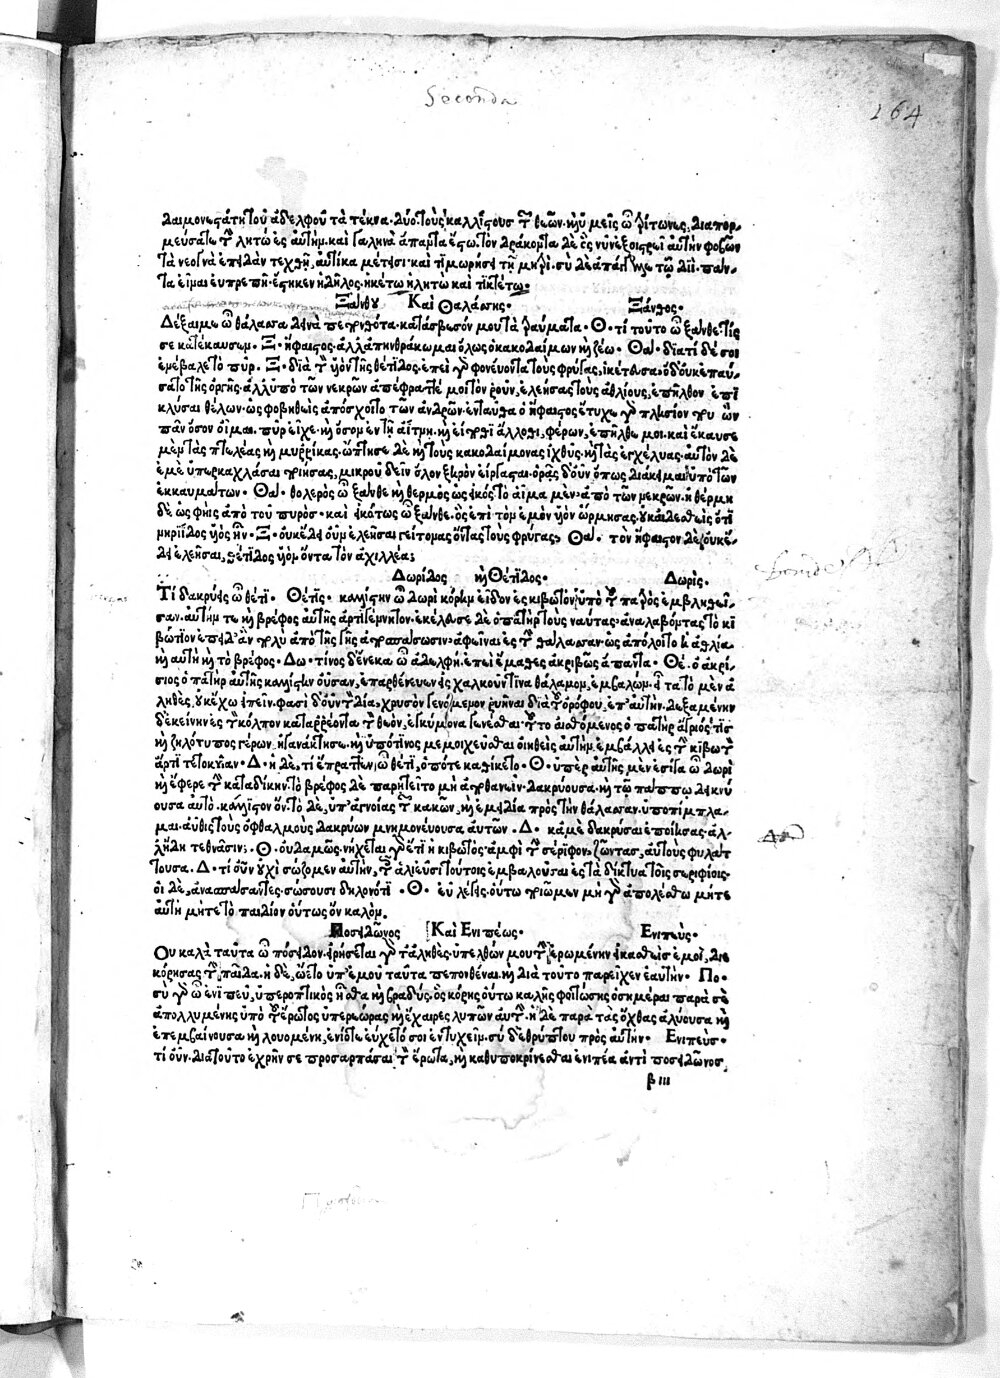 Seconda
164
δαιμονεστάτη τοῦ ἀδελφοῦ τὰ τέκνα· δύο τοὺς καλλίστους τῶν θεῶν· ἡμεῖς ὦ τρίτωνες, διαπορ-
μεύσατε τὴν λητὼ ἐς αὐτήν· καὶ γαληνὰ ἅπαντα ἔστω. τὸν δράκοντα δὲ ὃς νῦν ἐξοιστρεῖ αὐτὴν φοβῶν
τὰ νεογνὰ ἐπειδὰν τεχθῇ, αὐτίκα μέτεισι· καὶ τιμωρήσει τῇ μητρί. σὺ δὲ ἀπάγγελε τῷ διῒ παν-
τα εἶναι εὐπρεπῆ· ἕστηκεν ἡ δῆλος· ἡκέτω ἡ λητὼ καὶ τικτέτω·
Ξάνθου Καὶ Θαλάσσης· Ξάνθος·
Δέξαι με ὦ θάλασσα δεινὰ πεπονθότα· κατάσβεσόν μου τὰ τραύματα· Θ· τί τοῦτο ὦ ξάνθε· τίς
σε κατέκαυσεν· Ξ· ἥφαιστος· ἀλλ' ἀπηνθράκωμαι ὅλως ὁ κακοδαίμων καὶ ζέω· Θα· διατί δέ σοι
ἐνέβαλε τὸ πῦρ· Ξ· διὰ τὸν υἱὸν τῆς θέτιδος· ἐπεὶ γὰρ φονεύοντα τοὺς φρύγας, ἱκέτευσα· ὁ δ' οὐκ ἐπαύ-
σατο τῆς ὀργῆς· ἀλλ' ὑπὸ τῶν νεκρῶν ἀπέφρατέ μοι τὸν ῥοῦν, ἐλεήσας τοὺς ἀθλίους, ἐπῆλθον ἐπι
κλύσαι θέλων· ὡς φοβηθεὶς ἀπόσχοιτο τῶν ἀνδρῶν· ἐνταῦθα ὁ ἥφαιστος ἔτυχε γὰρ πλησίον που ὢν
πᾶν ὅσον οἶμαι πῦρ εἶχε· καὶ ὅσον ἐν τῇ αἴτνῃ, καὶ εἴ ποθι ἄλλοθι, φέρων, ἐπῆλθέ μοι· καὶ ἔκαυσε
μὲν τὰς πτελέας καὶ μυρρίκας· ὤπτησε δὲ καὶ τοὺς κακοδαίμονας ἰχθῦς, καὶ τὰς ἐγχέλυας· αὐτὸν δὲ
ἐμὲ ὑπερκαχλάσαι ποιήσας, μικροῦ δεῖν ὅλον ξηρὸν εἴργασται· ὁρᾷς δ' οὖν ὅπως διάκειμαι ὑπὸ τῶν
ἐκκαυμάτων· Θα· θολερὸς ὦ ξάνθε καὶ θερμὸς ὡς εἰκός· τὸ αἷμα μὲν· ἀπὸ τῶν νεκρῶν· ἡ θέρμη
δὲ ὡς φῂς ἀπὸ τοῦ πυρός· καὶ εἰκότως ὦ ξάνθε· ὃς ἐπὶ τὸν ἐμὸν υἱὸν ὥρμησας, οὐκ αἰδεσθεὶς ὅτι
νηρηΐδος υἱὸς ἦν· Ξ· οὐκ ἔδει οὖν ἐλεῆσαι γείτονας ὄντας τοὺς φρύγας; Θα· τὸν ἥφαιστον δὲ οὐκ ἔ-
δει ἐλεῆσαι, θέτιδος υἱὸν ὄντα τὸν ἀχιλλέα;
Δωρίδος καὶ Θέτιδος· Δωρίς·
Τί δακρύεις ὦ θέτι· Θέτις· καλλίστην ὦ δωρὶ κόρην εἶδον ἐς κιβωτὸν ὑπὸ τοῦ πατρὸς ἐμβληθεῖ-
σαν. αὐτήν τε καὶ βρέφος αὐτῆς ἀρτιγέννητον· ἐκέλευσε δὲ ὁ πατὴρ τοὺς ναύτας· ἀναλαβόντας τὸ κι
βώτιον ἐπειδὰν πολὺ ἀπὸ τῆς γῆς ἀποσπάσωσιν· ἀφεῖναι ἐς τὴν θάλασσαν· ὡς ἀπόλοιτο ἡ ἀθλία·
καὶ αὐτὴ καὶ τὸ βρέφος· Δω· τίνος δ' ἕνεκα ὦ ἀδελφή· ἐπεὶ ἔμαθες ἀκριβῶς ἅπαντα· Θέ· ὁ ἀκρί-
σιος ὁ πατὴρ αὐτῆς καλλίστην οὖσαν, ἐπαρθένευεν εἰς χαλκοῦν τινα θάλαμον, ἐμβαλών· εἶτα τὸ μὲν ἀ
ληθὲς, οὐκ ἔχω εἰπεῖν· φασὶ δ' οὖν τὸν δία, χρυσὸν γενόμενον ῥυῆναι διὰ τοῦ ὀρόφου, ἐπ' αὐτήν. δεξαμένην
δ' ἐκείνην ἐς τὸν κόλπον καταρρέοντα τὸν θεὸν, ἐγκύμονα γενέσθαι· τοῦτο αἰσθόμενος ὁ πατὴρ ἄγριός τις
καὶ ζηλότυπος γέρων, ἠγανάκτησε, καὶ ὑπό τινος μεμοιχεῦσθαι οἰηθεὶς αὐτὴν, ἐμβάλλει ἐς τὴν κιβωτὸν
ἄρτι τετοκυῖαν· Δ· ἡ δὲ, τί ἔπραττεν, ὦ θέτι, ὁπότε καθίκετο· Θ· ὑπὲρ αὑτῆς μὲν ἐσίγα ὦ δωρὶ
καὶ ἔφερε τὴν καταδίκην. τὸ βρέφος δὲ παρῃτεῖτο μὴ ἀποθανεῖν· δακρύουσα. καὶ τῷ πάππῳ δεικνύ
ουσα αὐτό· κάλλιστον ὄν. τὸ δὲ, ὑπ' ἀγνοίας τῶν κακῶν, καὶ ἐμειδία πρὸς τὴν θάλασσαν. ὑποπίμπλα-
μαι αὖθις τοὺς ὀφθαλμοὺς δακρύων μνημονεύουσα αὐτῶν· Δ· κἀμὲ δακρῦσαι ἐποίησας· ἀλ-
λ' ἤδη τεθνᾶσιν; Θ· οὐδαμῶς· νήχεται γὰρ ἔτι ἡ κιβωτὸς ἀμφὶ τὴν σέριφον, ζῶντας αὐτοὺς φυλάτ
τουσα. Δ· τί οὖν οὐχὶ σώζομεν αὐτὴν, τοῖς ἁλιεῦσι τούτοις ἐμβαλοῦσαι ἐς τὰ δίκτυα τοῖς σεριφίοις·
οἱ δὲ, ἀνασπάσαντες· σώσουσι δηλονότι· Θ· εὖ λέγεις· οὕτω ποιῶμεν μὴ γὰρ ἀπολέσθω μήτε
αὐτὴ μήτε τὸ παιδίον οὕτως ὂν καλόν.
Ποσειδῶνος Καὶ Ενιπέως· Ενιπεύς·
Οὐ καλὰ ταῦτα ὦ πόσειδον· εἰρήσεται γὰρ τἀληθές· ὑπελθών μου τὴν ἐρωμένην· εἰκασθεὶς ἐμοὶ, διε
κόρησας τὴν παῖδα· ἡ δὲ, ᾤετο ὑπ' ἐμοῦ ταῦτα πεπονθέναι. καὶ διὰ τοῦτο παρεῖχεν ἑαυτήν· Πο·
σὺ γὰρ ὦ ἐνιπεῦ, ὑπεροπτικὸς ἦσθα καὶ βραδύς· ὃς κόρης οὕτω καλῆς φοιτώσης ὁσημέραι παρὰ σὲ
ἀπολλυμένης ὑπὸ τοῦ ἔρωτος ὑπερεώρας καὶ ἔχαιρες λυπῶν αὐτήν· ἡ δὲ παρὰ τὰς ὄχθας ἀλύουσα καὶ
ἐπεμβαίνουσα καὶ λουομένη, ἐνίοτε εὔχετό σοι ἐντυχεῖν. σὺ δ' ἐθρύπτου πρὸς αὐτήν· Ενιπεύς·
τί οὖν. διὰ τοῦτο ἐχρῆν σε προσαρπάσαι τὸν ἔρωτα, καὶ καθυποκρίνεσθαι ἐνιπέα ἀντὶ ποσειδῶνος
β iii